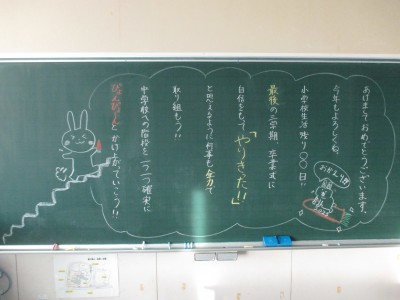 あけましておめでとうございます。
今年もよろしくね。
小学校生活残り〇〇日!!
最後の三学期、卒業式に
自信をもって「やりきった!!」
と思えるように何事も全力で
取り組もう!!
中学校への階段を一つ一つ確実に
ぴょんぴょんとかけ上がっていこう!!
おかえり